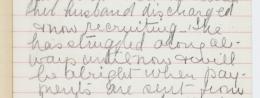 her husband discharged
& now recruiting. She
has struggled along al-
ways until now & will
be alright when pay-
ments are sent from